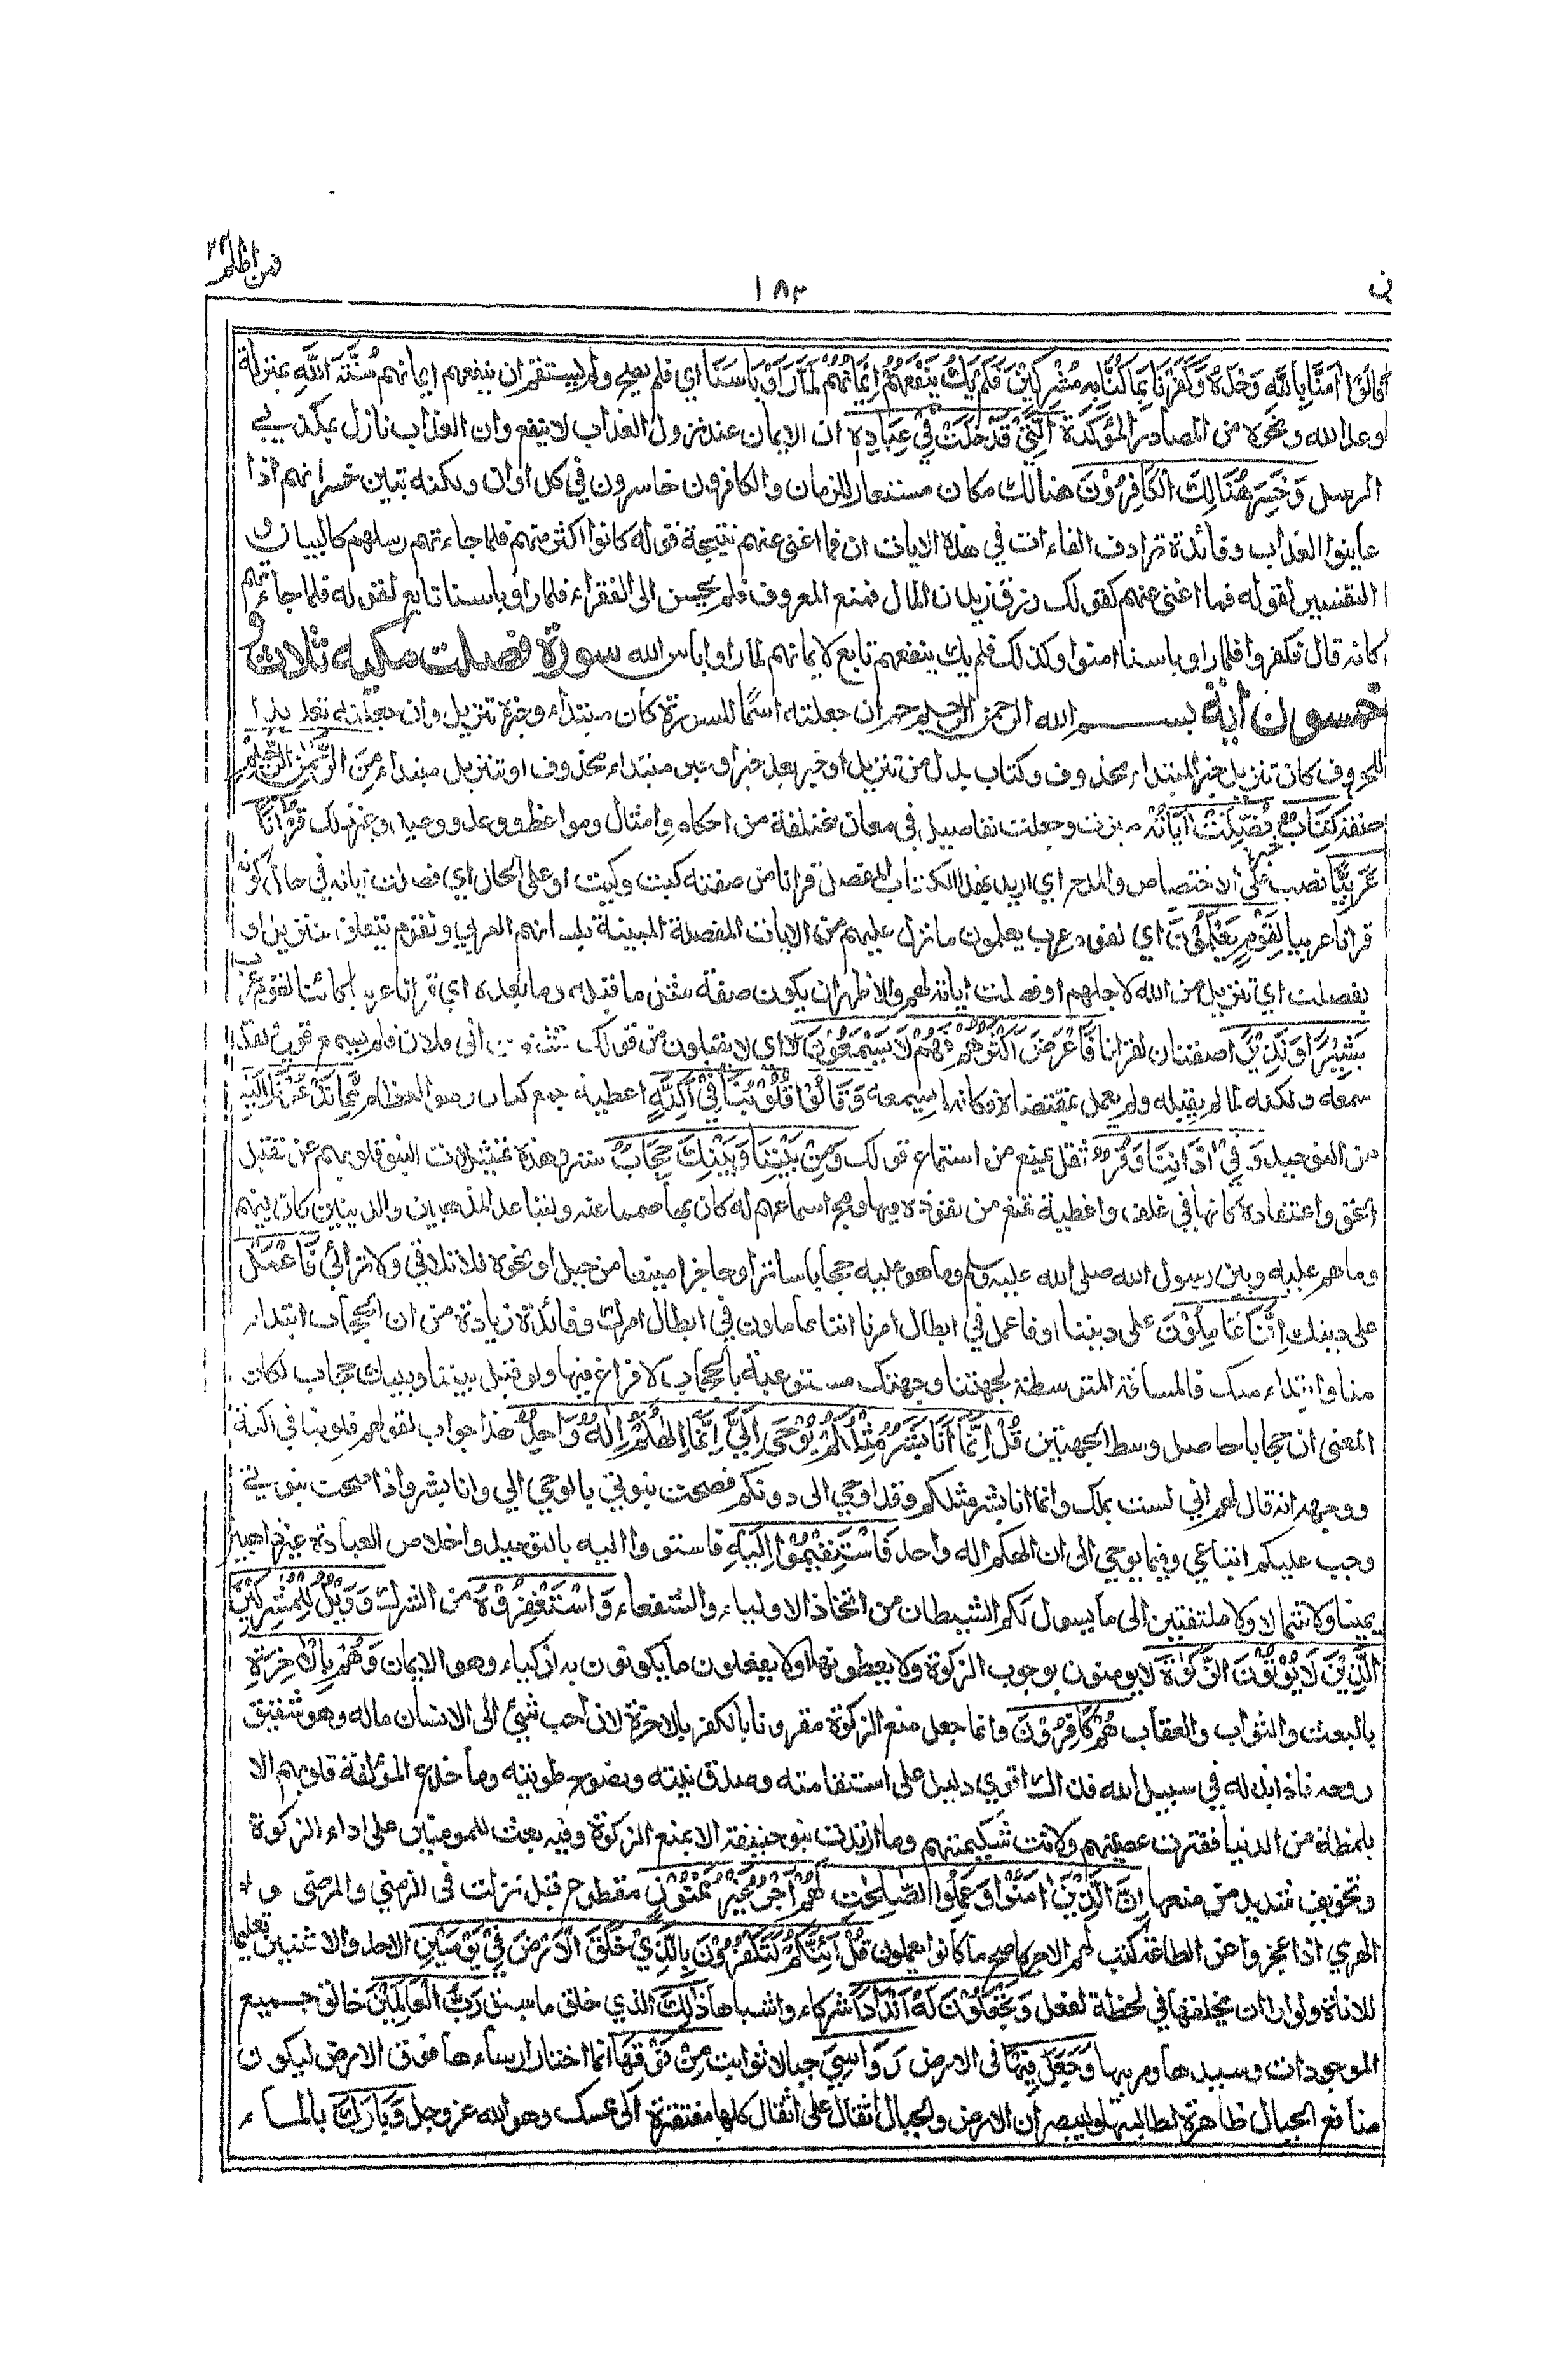 فمن اظلم ٢٤
١٨٣
ن
قَالُوْا اٰمَنَّا بِاللّٰهِ وَحْدَهٗ وَكَفَرْنَا بِمَا كُنَّا بِهٖ مُشْرِكِيْنَ فَلَمْ يَكُ يَنْفَعُهُمْ اِيْمَانُهُمْ لَمَّا رَاَوْا بَاْسَنَا اي فلم يصح ولم يستقم ان ينفعهم ايمانهم سُنَّةَ اللّٰهِ بمنزلة
وعد الله ونحوه من المصادر المؤكدة الَّتِيْ قَدْ خَلَتْ فِيْ عِبَادِهٖ ان الايمان عند نزول العذاب لا ينفع وان العذاب نازل بمكذبي
الرسل وَخَسِرَ هُنَالِكَ الْكَافِرُوْنَ هنالك مكان مستعار للزمان والكافرون خاسرون في كل اوان ولكنه تبين خسرانهم اذا
عاينوا العذاب وفائدة ترادف الفاءات في هذه الايات ان فما اغنى عنهم نتيجة قوله كانوا اكثر منهم فلما جاءتهم رسلهم كالبيان و
التفسير لقوله فما اغنى عنهم كقولك رزق زيد ن المال فمنع المعروف فلم يحسن الى الفقراء فلما راوا باسنا تابع لقوله فلما جاءتهم
كانه قال فكفروا فلما راوا باسنا امنوا وكذلك فلم يك ينفعهم تابع لايمانهم لما راوا باس الله سورة فصلت مكية ثلاث و
خمسون آية بسم الله الرحمن الرحيم حم ان جعلته اسمًا للسورة كان مبتداء وخبره تنزيل وان جعلته تعديدا
للحروف كان تنزيل خبرا لمبتداء محذوف وكتاب بدل من تنزيل او خبر بعد خبر او خبر مبتداء محذوف او تنزيل مبتداء مِنَ الرَّحْمٰنِ الرَّحِيْمِ
صفته كِتَابٌ خبره فُصِّلَتْ اٰيَاتُهٗ ميزت وجعلت تفاصيل في معان مختلفة من احكام وامثال ومواعظ ووعد ووعيد وغير ذلك قُرْاٰنًا
عَرَبِيًّا نصب على الاختصاص والمدح اي اريد بهذا الكتاب المفصل قرانا من صفته كيت وكيت او على الحال اي فصلت اياته في حال كونه
قرانا عربيا لِقَوْمٍ يَّعْلَمُوْنَ اي لقوم عرب يعلمون ما نزل عليهم من الايات المفصلة المبينة بلسانهم العربي ولقوم يتعلق بتنزيل او
بفصلت اي تنزيل من الله لاجلهم او فصلت اياته لهم والاظهر ان يكون صفة مثل ما قبله وما بعده اي قرانا عربيا كائنا لقوم عرب
بَشِيْرًا وَّنَذِيْرًا صفتان لقرانا فَاَعْرَضَ اَكْثَرُهُمْ فَهُمْ لَا يَسْمَعُوْنَ اي لا يقبلون من قولك تشفعت الى فلان فلم يسمع قولي ولقد
سمعه ولكنه لما لم يقبله ولم يعمل بمقتضاه فكانه لم يسمعه وَقَالُوْا قُلُوْبُنَا فِيْ اَكِنَّةٍ اغطية جمع كنان وهو الغطاء مِّمَّا تَدْعُوْنَا اِلَيْهِ
من التوحيد وَفِيْ اٰذَانِنَا وَقْرٌ ثقل يمنع من استماع قولك وَّمِنْ بَيْنِنَا وَبَيْنِكَ حِجَابٌ ستر وهذه تمثيلات لنبو قلوبهم عن تقبل
الحق واعتقاده كانها في غلف واغطية تمنع من نفوذه فيها ومج اسماعهم له كان بها صمما عنه ولتباعد المذهبين والدينين كان بينهم
وما هم عليه وبين رسول الله صلى الله عليه وسلم وما هو عليه حجابا ساترا وحاجزا منيعا من جبل او نحوه فلا تلاقي ولا ترائي فَاعْمَلْ
على دينك اِنَّنَا عَامِلُوْنَ على ديننا او فاعمل في ابطال امرنا اننا عاملون في ابطال امرك وفائدة زيادة من ان الحجاب ابتداء
منا وابتداء منك فالمسافة المتوسطة لجهتنا وجهتك مستوعبة بالحجاب لا فراغ فيها ولو قيل بيننا وبينك حجاب لكان
المعنى ان حجابا حاصل وسط الجهتين قُلْ اِنَّمَا اَنَا بَشَرٌ مِّثْلُكُمْ يُوْحٰى اِلَيَّ اَنَّمَا اِلٰهُكُمْ اِلٰهٌ وَّاحِدٌ هذا جواب لقولهم قلوبنا في اكنة
ووجهه انه قال لهم اني لست بملك وانما انا بشر مثلكم وقد اوحي الي دونكم فصحت نبوتي بالوحي الي وانا بشر واذا صحت نبوتي
وجب عليكم اتباعي وفيما يوحي الي ان الهكم اله واحد فَاسْتَقِيْمُوْا اِلَيْهِ فاستووا اليه بالتوحيد واخلاص العبادة غير ذاهبين
يمينا ولا شمالا ولا ملتفتين الى ما يسول لكم الشيطان من اتخاذ الاولياء والشفعاء وَاسْتَغْفِرُوْهُ من الشرك وَوَيْلٌ لِّلْمُشْرِكِيْنَ
الَّذِيْنَ لَا يُؤْتُوْنَ الزَّكٰوةَ لا يومنون بوجوب الزكوة ولا يعطونها او لا يفعلون ما يكونون به ازكياء وهو الايمان وَهُمْ بِالْاٰخِرَةِ
بالبعث والثواب والعقاب هُمْ كَافِرُوْنَ وانما جعل منع الزكوة مقرونا بالكفر بالاخرة لان احب شيئ الى الانسان ماله وهو شقيق
روحه فاذا بذله في سبيل الله فذلك اقوى دليل على استقامته وصدق نيته ونصوح طويته وما خدع المؤلفة قلوبهم الا
بلمظة من الدنيا فقرت عصبيتهم ولانت شكيمتهم وما ارتدت بنو حنيفة الا بمنع الزكوة وفيه بعث للمومنين على اداء الزكوة
وتخويف شديد من منعها اِنَّ الَّذِيْنَ اٰمَنُوْا وَعَمِلُوا الصّٰلِحٰتِ لَهُمْ اَجْرٌ غَيْرُ مَمْنُوْنٍ مقطوع قيل نزلت في الزمني والمرضى و
الهرمى اذا عجزوا عن الطاعة كتب لهم الاجر كاصح ما كانوا يعملون قُلْ اَئِنَّكُمْ لَتَكْفُرُوْنَ بِالَّذِيْ خَلَقَ الْاَرْضَ فِيْ يَوْمَيْنِ الاحد والاثنين تعليما
للاناة ولو اراد ان يخلقها في لحظة لفعل وَتَجْعَلُوْنَ لَهٗ اَنْدَادًا شركاء واشباها ذٰلِكَ الذي خلق ما سبق رَبُّ الْعَالَمِيْنَ خالق جميع
الموجودات وسيدها ومربيها وَجَعَلَ فِيْهَا في الارض رَوَاسِيَ جبالا ثوابت مِنْ فَوْقِهَا انما اختار ارساءها فوق الارض ليكون
منافع الجبال ظاهرة لطالبيها وليبصر ان الارض والجبال اثقال على اثقال كلها مفتقرة الى ممسك وهو الله عز وجل وَبَارَكَ بالماء